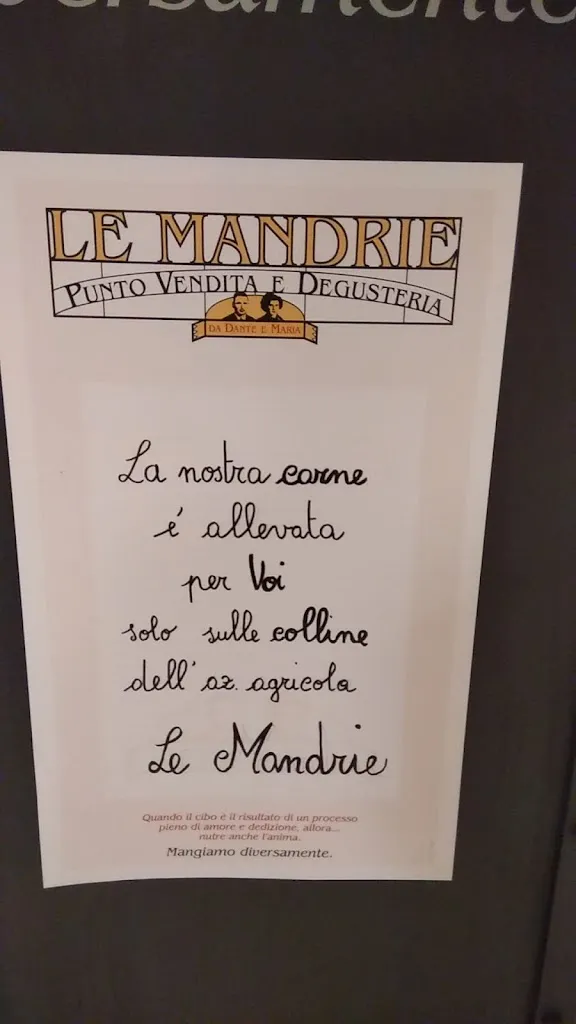 LE MANDRIE
PUNTO VENDITA E DEGUSTERIA
DA DANTE E MARIA
La nostra carne
é allevata
per Voi
solo sulle colline
dell' az. agricola
Le Mandrie
Quando il cibo è il risultato di un processo
pieno di amore e dedizione, allora...
nutre anche l'anima.
Mangiamo diversamente.